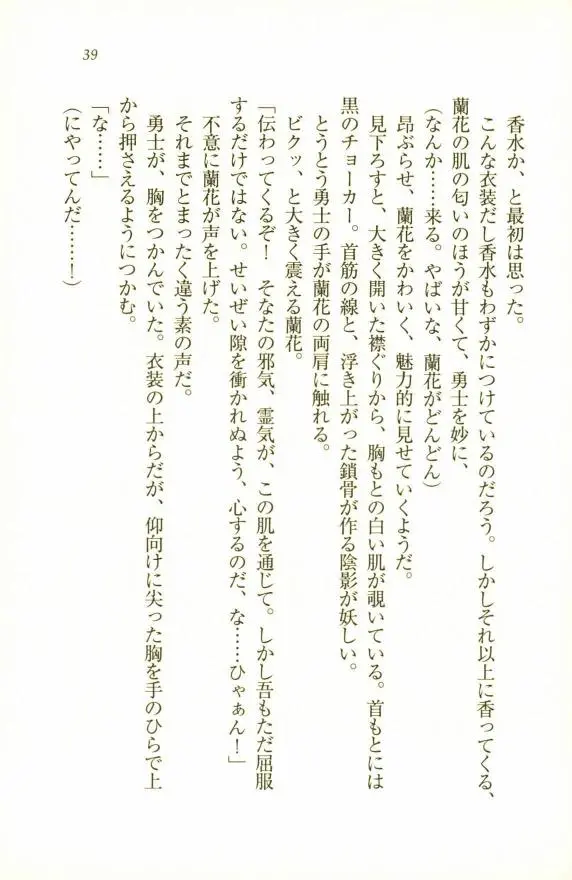 39
香水か、と最初は思った。
こんな衣装だし香水もわずかにつけているのだろう。しかしそれ以上に香ってくる、
蘭花の肌の匂いのほうが甘くて、勇士を妙に、
(なんか……来る。やばいな、蘭花がどんどん)
昂ぶらせ、蘭花をかわいく、魅力的に見せていくようだ。
見下ろすと、大きく開いた襟ぐりから、胸もとの白い肌が覗いている。首もとには
黒のチョーカー。首筋の線と、浮き上がった鎖骨が作る陰影が妖しい。
とうとう勇士の手が蘭花の両肩に触れる。
ビクッ、と大きく震える蘭花。
「伝わってくるぞ！　そなたの邪気、霊気が、この肌を通じて。しかし吾もただ屈服
するだけではない。せいぜい隙を衝かれぬよう、心するのだ、な……ひゃぁん！」
不意に蘭花が声を上げた。
それまでとまったく違う素の声だ。
勇士が、胸をつかんでいた。衣装の上からだが、仰向けに尖った胸を手のひらで上
から押さえるようにつかむ。
「な……」
(にやってんだ………！)